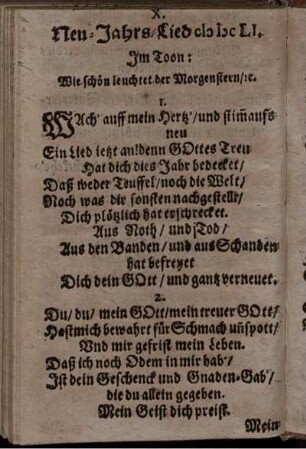 X.
Neu-Jahrs-Lied cIɔ Iɔc LI.
Im Toon:
Wie schön leuchtet der Morgenstern/ ꝛc.
1.
WAch' auff mein Hertz'/ und stim̃ aufs
neu
Ein Lied jetzt an! denn GOttes Treu
Hat dich dies Jahr bedecket/
Daß weder Teuffel/ noch die Welt/
Noch was dir sonsten nachgestellt/
Dich plötzlich hat erschrecket.
Aus Noth/ und Tod/
Aus den Banden/ und aus Schanden
hat befreyet
Dich dein GOtt/ und gantz verneuet.
2.
Du/ du/ mein GOtt/ mein treuer GOtt/
Hast mich bewahrt für Schmach uñ spott/
Vnd mir gefrist mein Leben.
Daß ich noch Odem in mir hab'/
Ist dein Geschenck und Gnaden-Gab'/
die du allein gegeben.
Mein Geist dich preist.
Mein